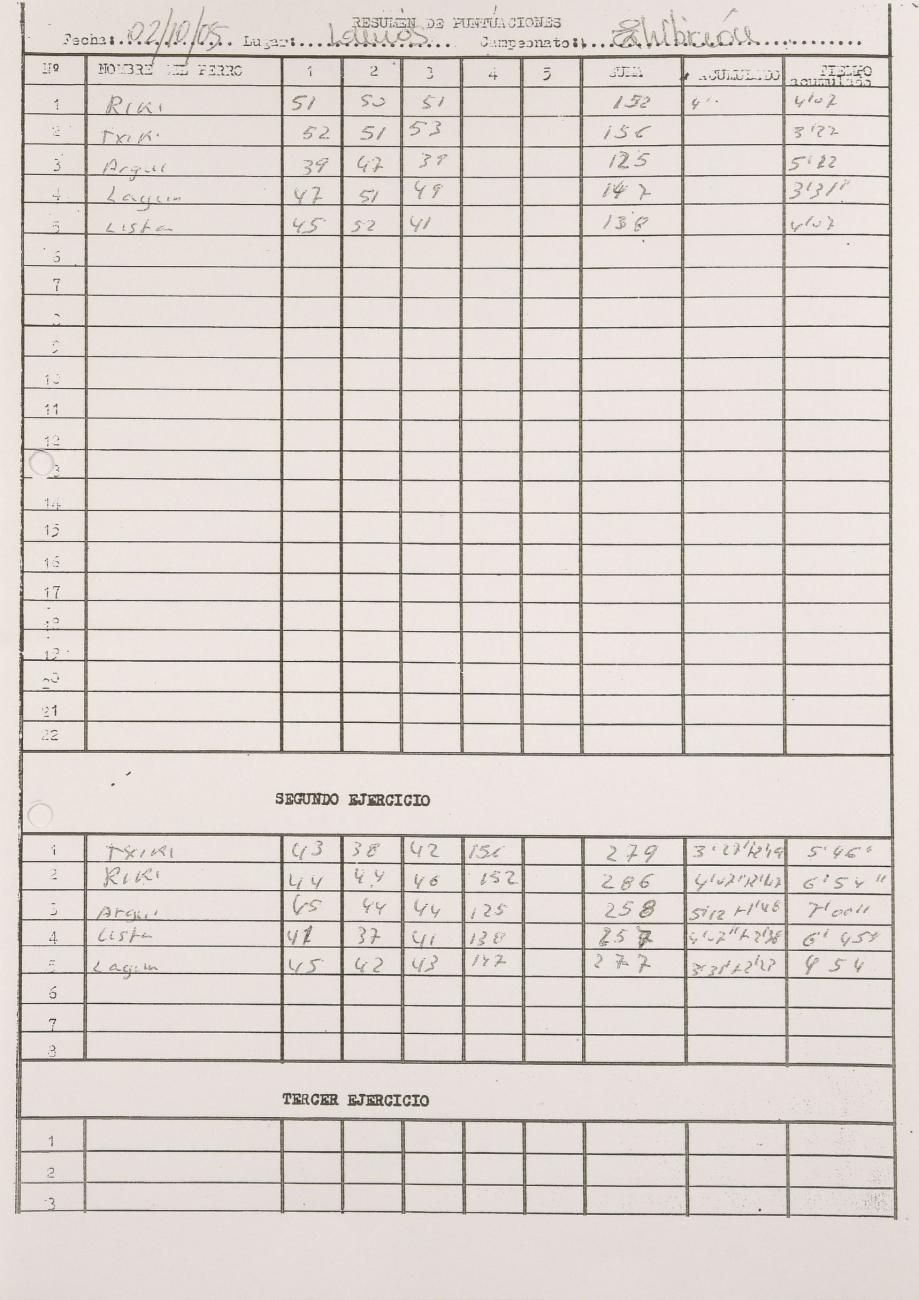 RESUMEN DE PUNTUACIONES
Fecha: 02/10/05 Lugar: Campeonato: Exhibición
Nº NOMBRE DEL PERRO 1 2 3 4 5 SUMA ACUMULADO TIEMPO acumulado
1 RIKI 51 50 51 152 4'07
2 TXIKI 52 51 53 156 3'27
3 Argui 39 47 39 125 5'12
4 Lagun 47 51 49 147 3'31"
5 Lista 45 52 41 138 4'07
6
7
8
9
10
11
12
13
14
15
16
17
18
19
20
21
22
SEGUNDO EJERCICIO
1 TXIKI 43 38 42 156 279 5'46"
2 RIKI 44 44 46 152 286 6'54"
3 Argui 45 44 44 125 258 5'12+1'48 7'00"
4 Lista 41 37 41 138 257 6'45"
5 Lagun 45 42 43 147 277 5 4
6
7
8
TERCER EJERCICIO
1
2
3